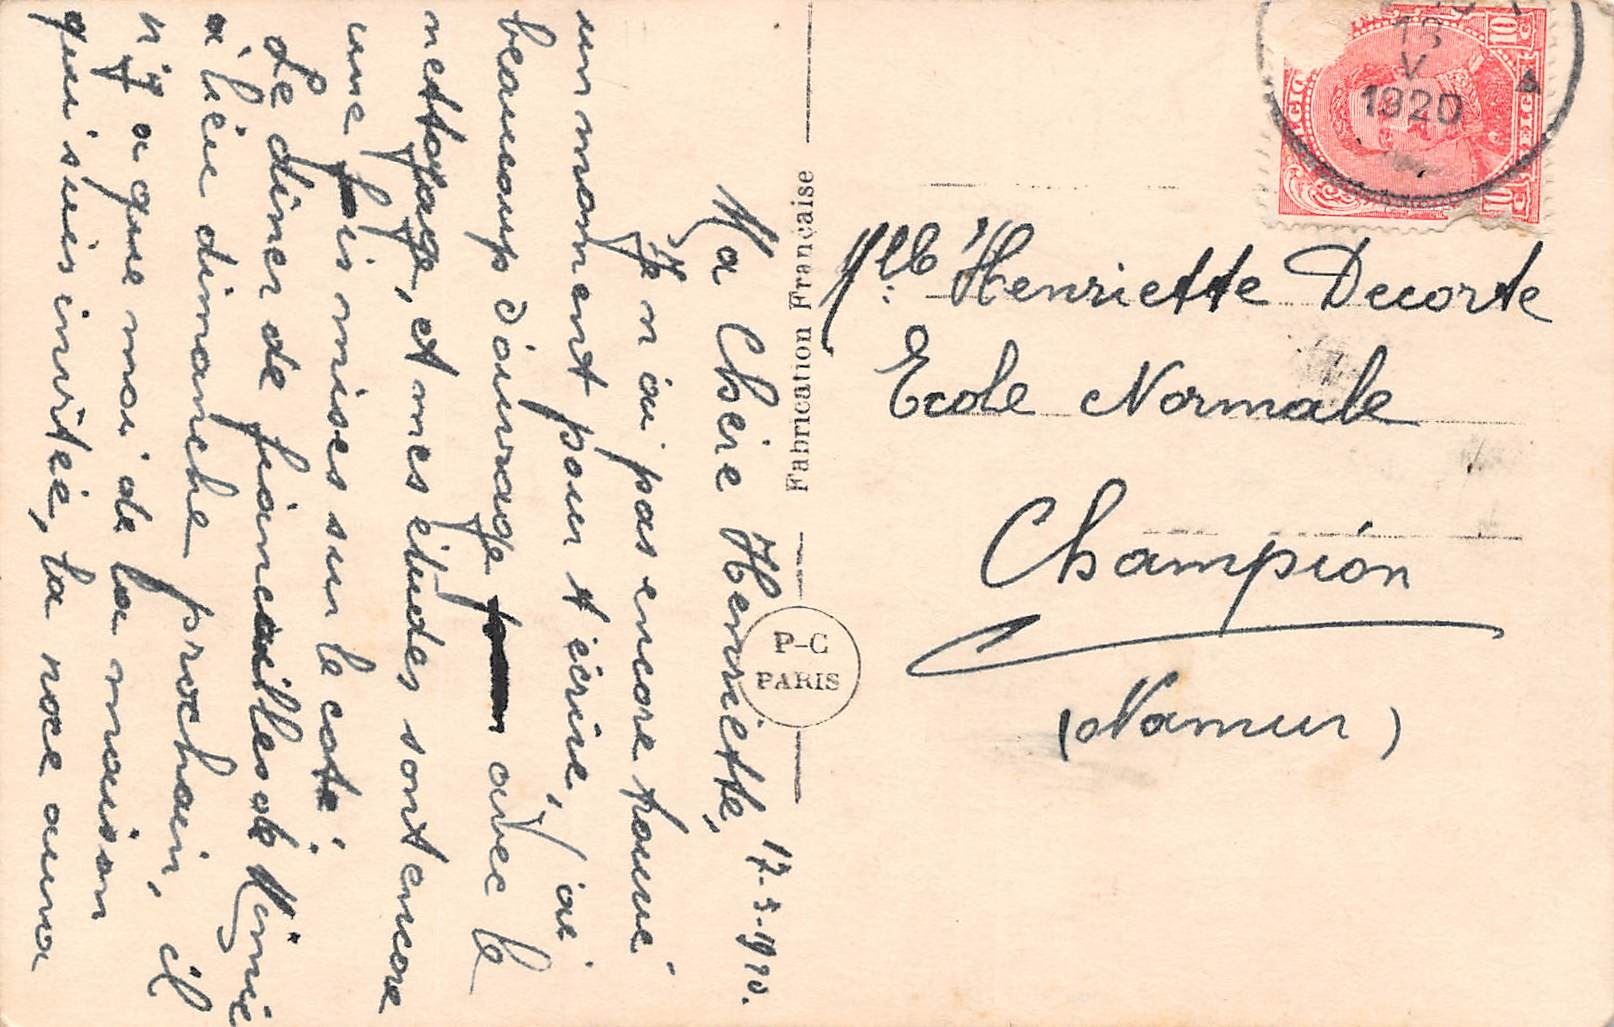 17-5-1920.
Ma Chère Henriette,
Je n'ai pas encore trouvé
un moment pour t'écrire, j'ai
beaucoup d'ouvrage avec le
nettoyage, et mes études sont encore
une fois mises sur le coté.
Le dîner de fiançailles de
a lieu dimanche prochain, il
n'y a que moi de la maison
qui suis invitée, la noce aura
Fabrication Française
P-C
PARIS
1920
10 C
10 C
Mlle Henriette Decorte
Ecole Normale
Champion
(Namur)